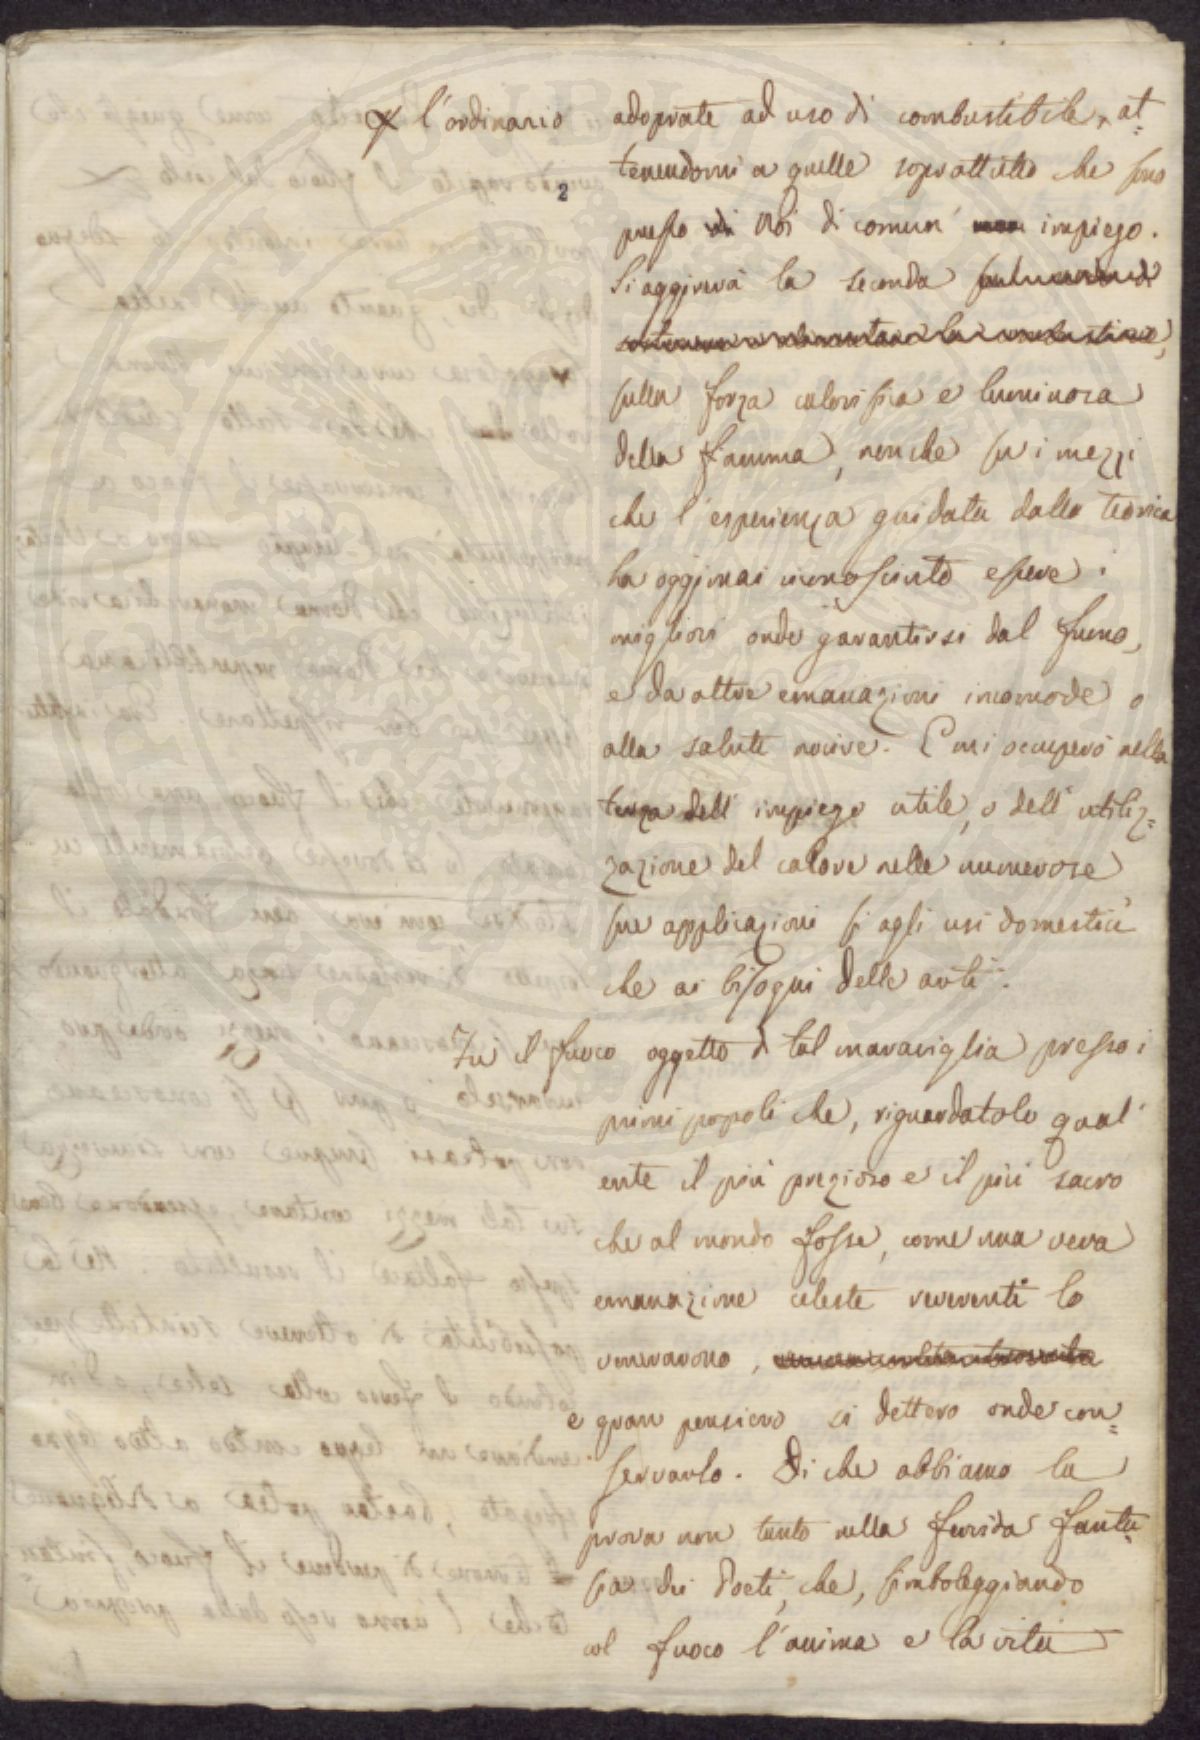 x l'ordinario
2
adoprate ad uso di combustibile, at=
tenendomi a quelle soprattutto che sono
presso di Noi di comun' impiego.
Si aggirerà la seconda
sulla forza calorifica e luminosa
della fiamma, nonche su i mezzi
che l'esperienza guidata dalla teorica
ha oggimai riconosciuto essere i
migliori onde garantirsi dal fumo,
e da altre emanazioni incomode o
alla salute nocive. E mi occuperò nella
terza dell'impiego utile, o dell'utiliz=
zazione del calore nelle numerose
sue applicazioni sì agli usi domestici
che ai bisogni delle arti.
Fu il fuoco oggetto di tal maraviglia presso i
primi popoli che, riguardatolo qual'
ente il più prezioso e il più sacro
che al mondo fosse, come una vera
emanazione celeste reverenti lo
veneravono,
e gran pensiero si dettero onde con=
servarlo. Di che abbiamo la
prova non tanto nella fervida fanta=
sia dei Poeti, che, simboleggiando
col fuoco l'anima e la vita